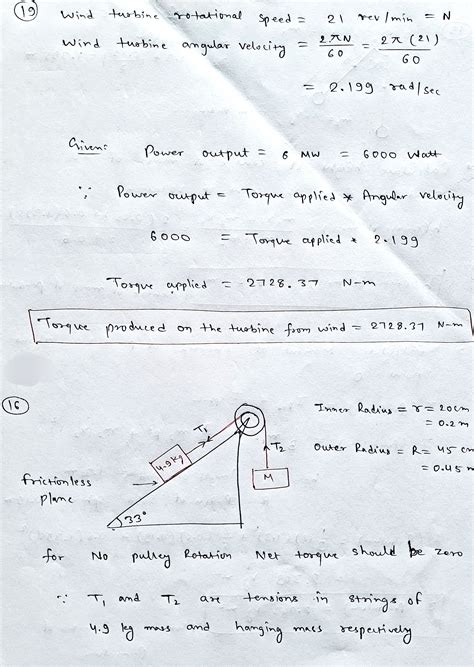 19 Wind turbine rotational speed = 21 rev/min = N
Wind turbine angular velocity = 2πN/60 = 2π(21)/60
= 2.199 rad/sec
Given: Power output = 6 MW = 6000 Watt
∵ Power output = Torque applied * Angular velocity
6000 = Torque applied * 2.199
Torque applied = 2728.37 N-m
Torque produced on the turbine from wind = 2728.37 N-m
16
Inner Radius = r = 20cm
= 0.2m
T1
T2
Outer Radius = R = 45 cm
= 0.45 m
4.9 kg
M
frictionless
plane
33°
for No pulley Rotation Net torque should be zero
∵ T1 and T2 are tensions in strings of
4.9 kg mass and hanging mass respectively